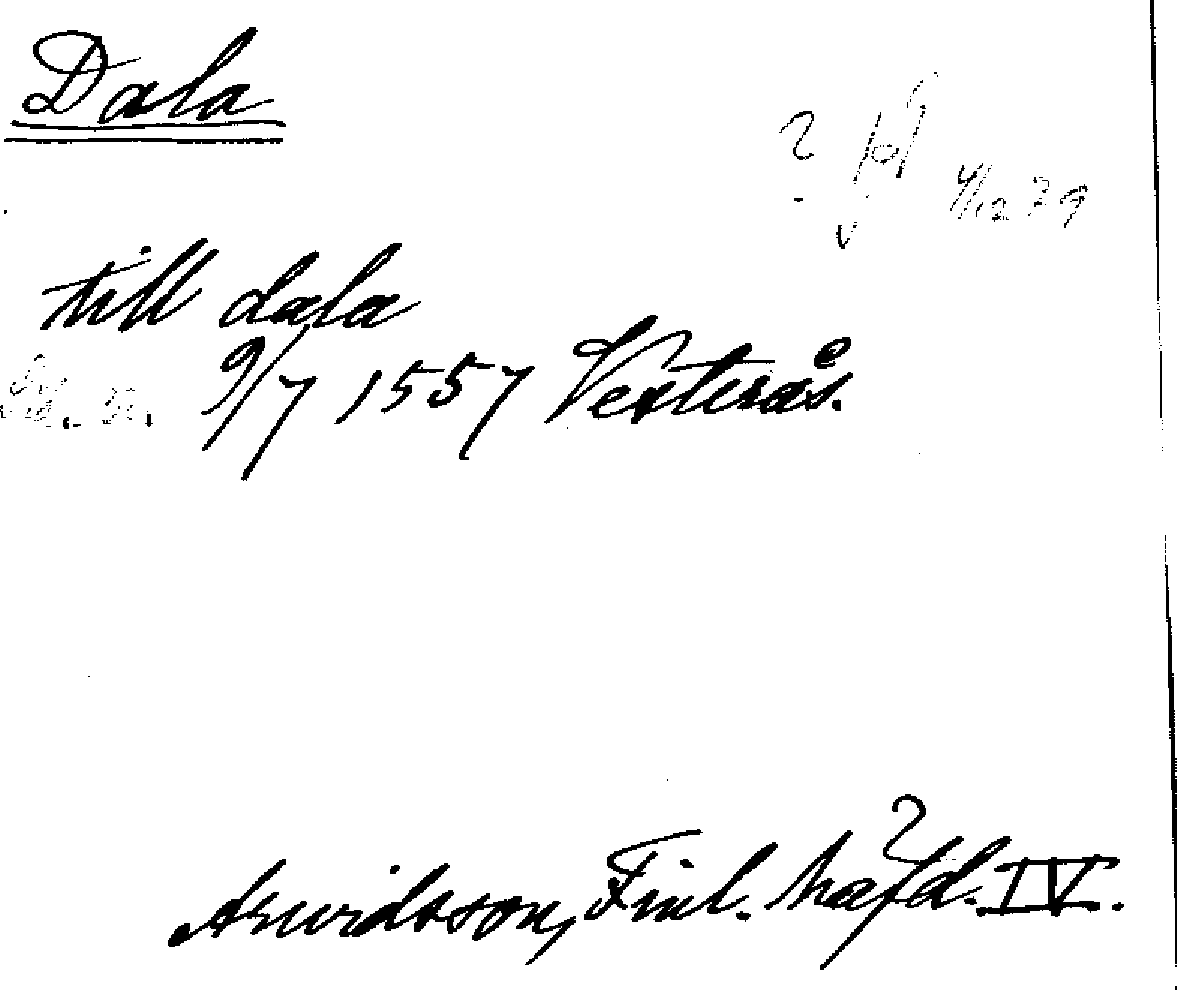 Dala
? 4/12 79
till dala
9/7 1557 Vesterås.
Arwidsson, Finl. häfd. IV.